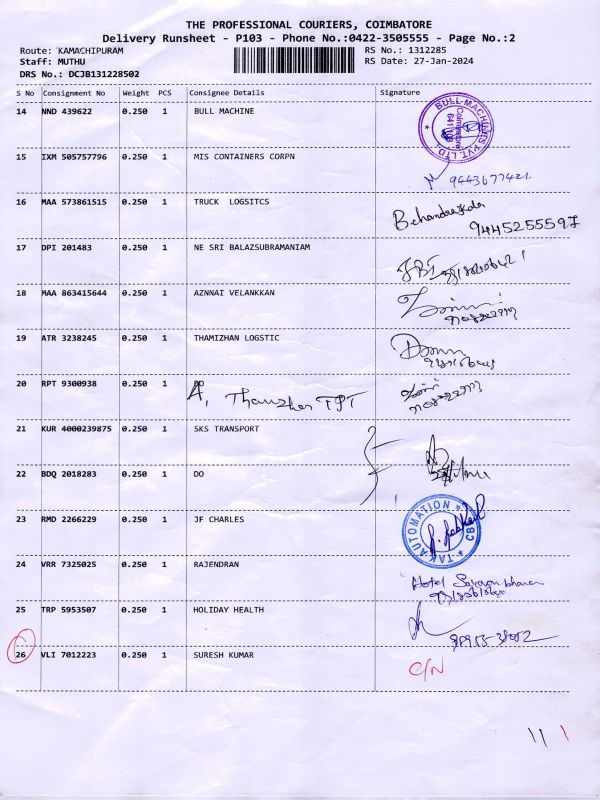 THE PROFESSIONAL COURIERS, COIMBATORE
Delivery Runsheet - P103 - Phone No.:0422-3505555 - Page No.:2
Route: KAMACHIPURAM
RS No.: 1312285
Staff: MUTHU
RS Date: 27-Jan-2024
DRS No.: DCJB131228502
S No Consignment No Weight PCS Consignee Details Signature
14 NND 439622 0.250 1 BULL MACHINE
BULL MACHINES PVT. LTD. Coimbatore 641 103
15 IXM 505757796 0.250 1 MIS CONTAINERS CORPN
9443677421.
16 MAA 573861515 0.250 1 TRUCK LOGSITCS
9445255597
17 DPI 201483 0.250 1 NE SRI BALAZSUBRAMANIAM
18 MAA 863415644 0.250 1 AZNNAI VELANKKAN
19 ATR 3238245 0.250 1 THAMIZHAN LOGSTIC
20 RPT 9300938 0.250 1
21 KUR 4000239875 0.250 1 SKS TRANSPORT
22 BDQ 2018283 0.250 1 DO
23 RMD 2266229 0.250 1 JF CHARLES
AUTOMATION
24 VRR 7325025 0.250 1 RAJENDRAN
Hotel
25 TRP 5953507 0.250 1 HOLIDAY HEALTH
26 VLI 7012223 0.250 1 SURESH KUMAR
C/N